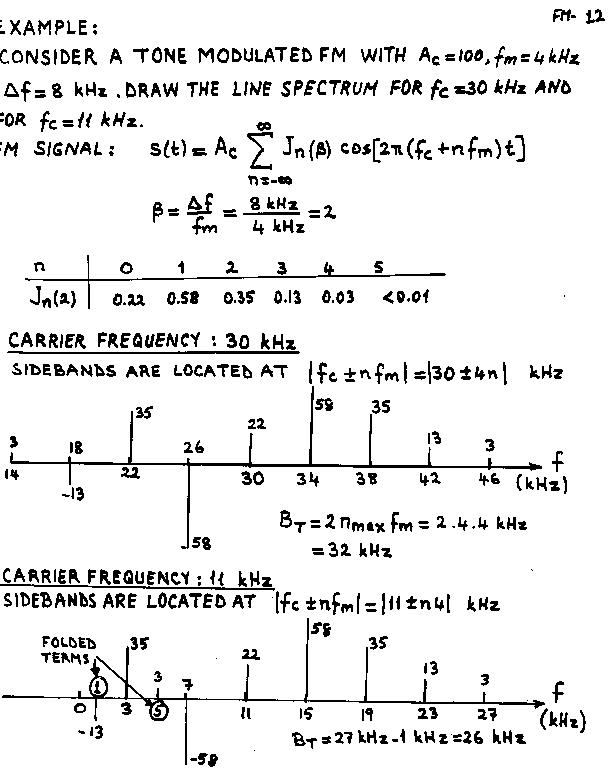 FM- 12
EXAMPLE:
CONSIDER A TONE MODULATED FM WITH Ac=100, fm=4kHz
Δf=8 kHz. DRAW THE LINE SPECTRUM FOR fc=30 kHz AND
FOR fc=11 kHz.
FM SIGNAL: s(t)= Ac ∞ Σ n=-∞ Jn(β) cos[2π(fc+nfm)t]
β= Δf/fm = 8 kHz/4 kHz =2
n 0 1 2 3 4 5
Jn(2) 0.22 0.58 0.35 0.13 0.03 <0.01
CARRIER FREQUENCY : 30 kHz
SIDEBANDS ARE LOCATED AT |fc±nfm|=|30±4n| kHz
35 58 35
22
3 18 26 13 3
14 22 30 34 38 42 46 f (kHz)
-13
-58
BT=2nmax fm = 2.4.4 kHz
=32 kHz
CARRIER FREQUENCY: 11 kHz
SIDEBANDS ARE LOCATED AT |fc±nfm|=|11±n4| kHz
FOLDED TERMS
35 22 58 35
1 3 7 13 3
0 3 5 11 15 19 23 27 f (kHz)
-13
-58
BT=27kHz-1 kHz=26 kHz